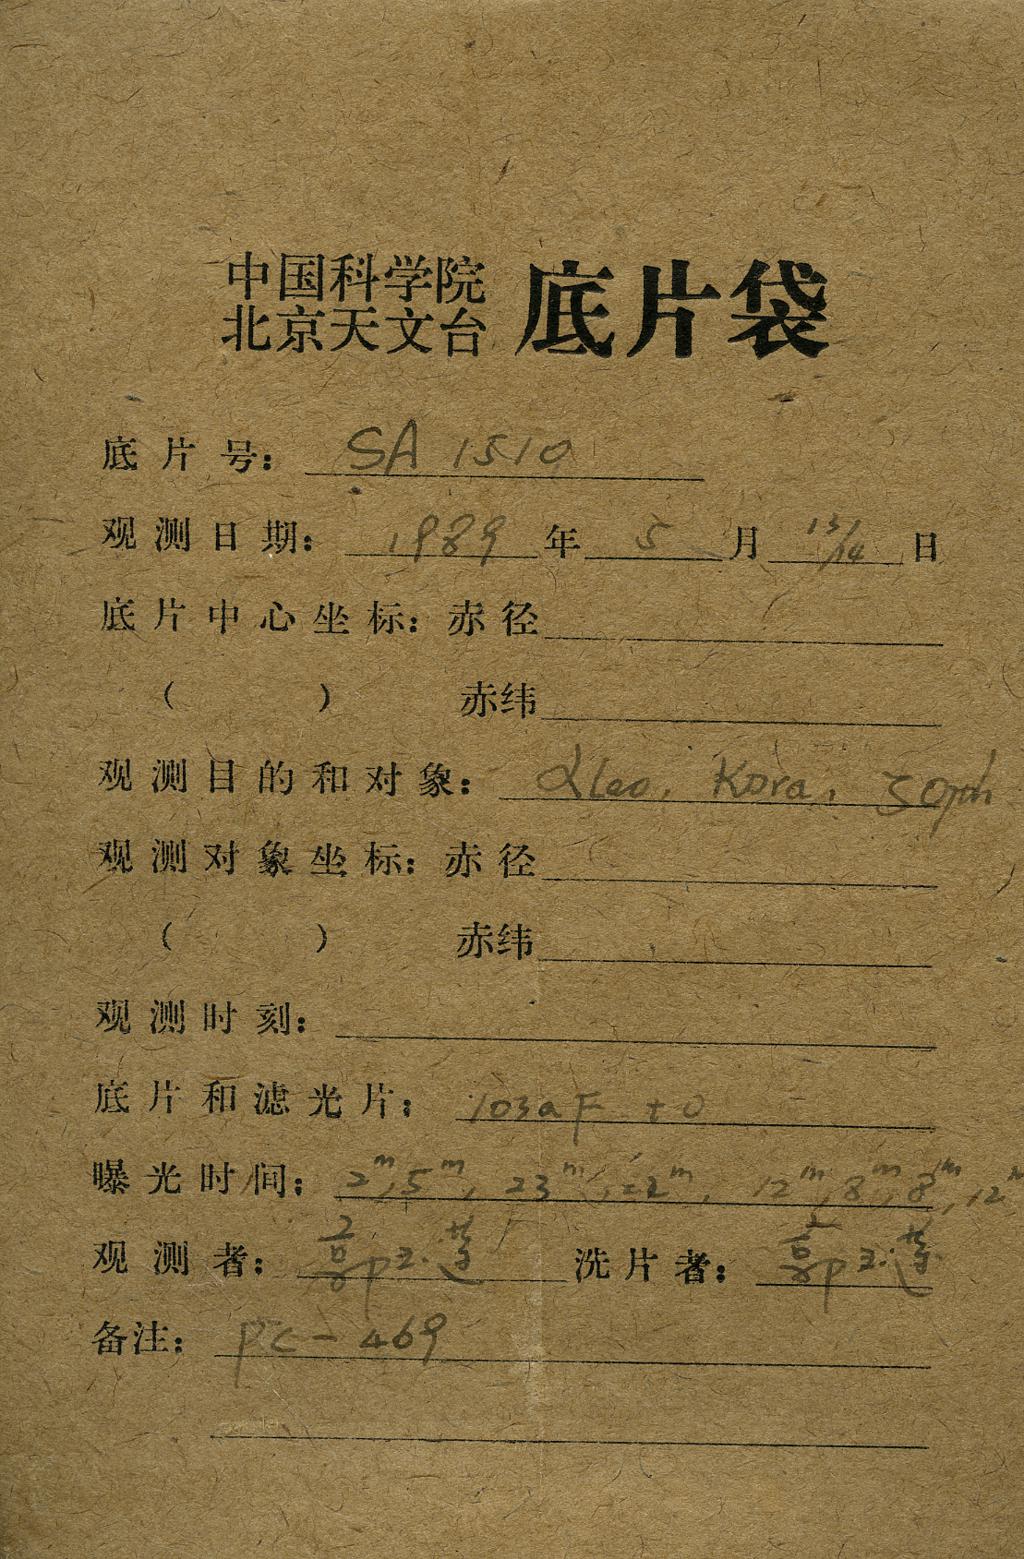 中国科学院
北京天文台 底片袋
底片号: SA 1510
观测日期: 1989 年 5 月 13/14 日
底片中心坐标: 赤径
( ) 赤纬
观测目的和对象: αLeo, Kora, ζOph
观测对象坐标: 赤径
( ) 赤纬
观测时刻:
底片和滤光片: 103aF + 0
曝光时间: 2ᵐ, 5ᵐ, 23ᵐ, 22ᵐ, 12ᵐ, 8ᵐ, 8ᵐ, 12ᵐ
观测者: 郭玉莲 洗片者: 郭玉莲
备注: PC-469